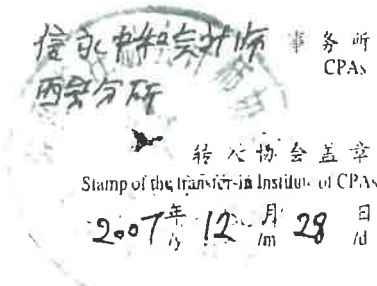 信永中和会计师 事务所
CPAs
西安分所
转入协会盖章
Stamp of the transfer-in Institute of CPAs
2007年 12月 28日
/y /m /d